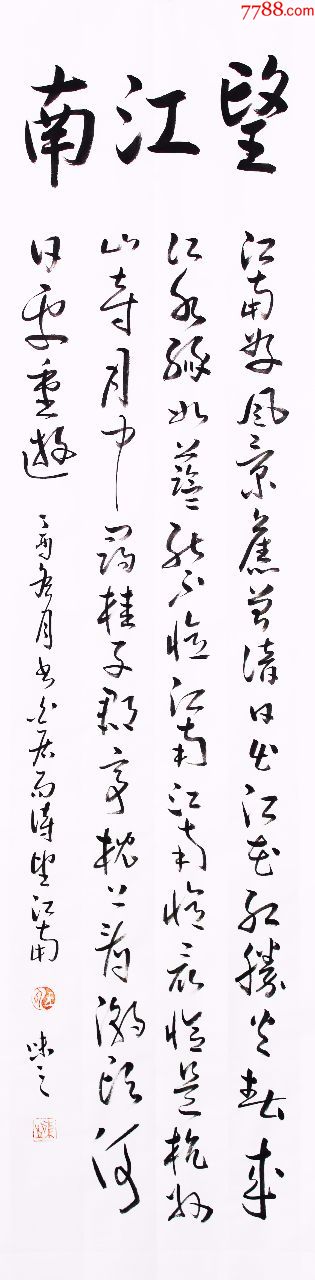 7788.com
望江南
江南好風景舊曾諳日出江花紅勝火春來
江水綠如藍能不憶江南江南憶最憶是杭州
山寺月中尋桂子郡亭枕上看潮頭何
日更重遊
冬月書白居易詩望江南